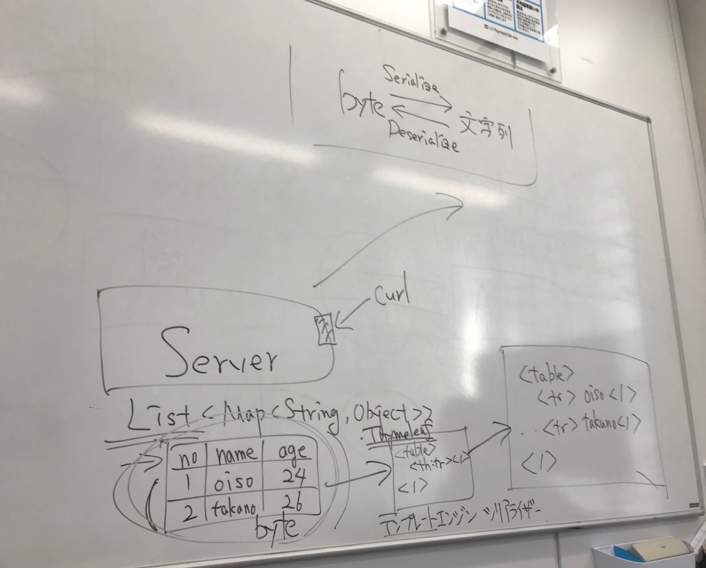 Serialize
byte 文字列
Deserialize
curl
Server
List<Map<String, Object>>
no name age
1 oiso 24
2 takano 26
byte
.Thymeleaf
<table>
<th:tr><1>
<1>
テンプレートエンジン シリアライザー
<table>
<tr> oiso <1>
<tr> takano <1>
<1>